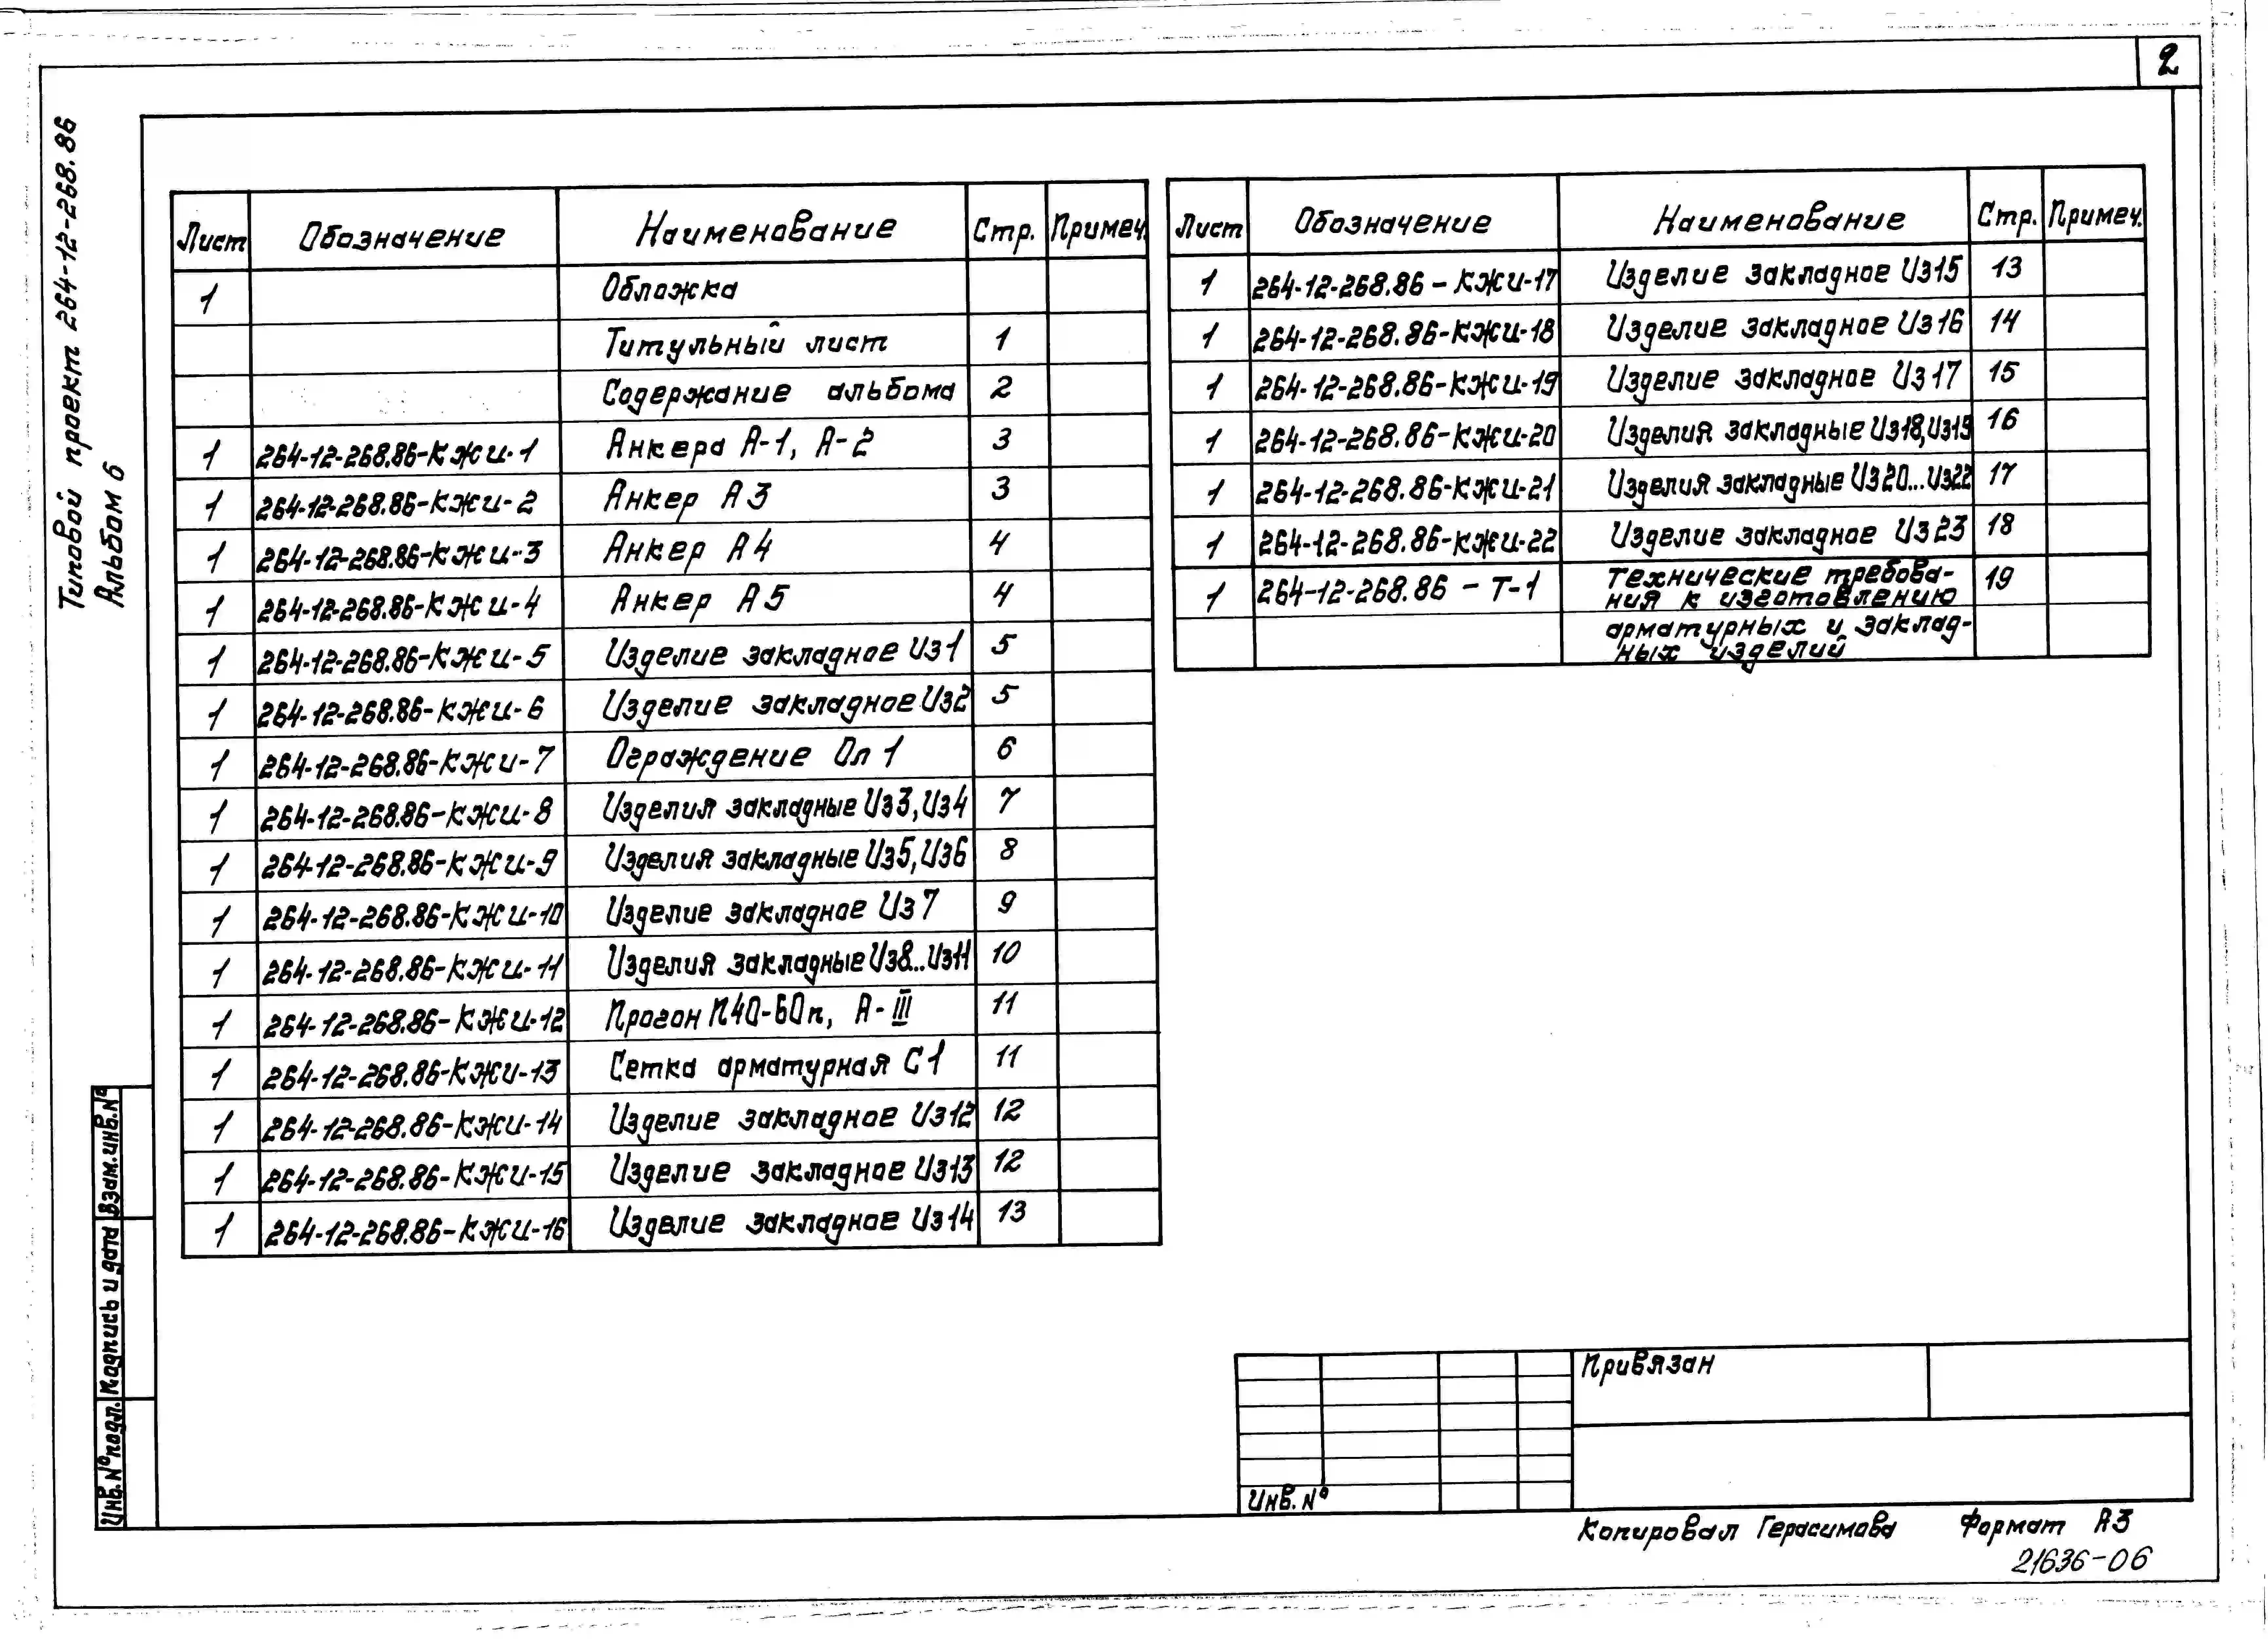 2
Типовой проект 264-12-268.86
Альбом 6
Лист Обозначение Наименование Стр. Примеч.
1 Обложка
Титульный лист 1
Содержание альбома 2
1 264-12-268.86-КЖИ-1 Анкера А-1, А-2 3
1 264-12-268.86-КЖИ-2 Анкер А3 3
1 264-12-268.86-КЖИ-3 Анкер А4 4
1 264-12-268.86-КЖИ-4 Анкер А5 4
1 264-12-268.86-КЖИ-5 Изделие закладное Из1 5
1 264-12-268.86-КЖИ-6 Изделие закладное Из2 5
1 264-12-268.86-КЖИ-7 Ограждение Оп1 6
1 264-12-268.86-КЖИ-8 Изделия закладные Из3, Из4 7
1 264-12-268.86-КЖИ-9 Изделия закладные Из5, Из6 8
1 264-12-268.86-КЖИ-10 Изделие закладное Из7 9
1 264-12-268.86-КЖИ-11 Изделия закладные Из8..Из11 10
1 264-12-268.86-КЖИ-12 Прогон П40-60п, А-III 11
1 264-12-268.86-КЖИ-13 Сетка арматурная С1 11
1 264-12-268.86-КЖИ-14 Изделие закладное Из12 12
1 264-12-268.86-КЖИ-15 Изделие закладное Из13 12
1 264-12-268.86-КЖИ-16 Изделие закладное Из14 13
Лист Обозначение Наименование Стр. Примеч.
1 264-12-268.86-КЖИ-17 Изделие закладное Из15 13
1 264-12-268.86-КЖИ-18 Изделие закладное Из16 14
1 264-12-268.86-КЖИ-19 Изделие закладное Из17 15
1 264-12-268.86-КЖИ-20 Изделия закладные Из18, Из19 16
1 264-12-268.86-КЖИ-21 Изделия закладные Из20...Из22 17
1 264-12-268.86-КЖИ-22 Изделие закладное Из23 18
1 264-12-268.86-Т-1 Технические требова- 19
ния к изготовлению
арматурных и заклад-
ных изделий
Взам.инв.№
Подпись и дата
Инв.№подл.
Привязан
Инв.№
Копировал Герасимова Формат А3
21636-06